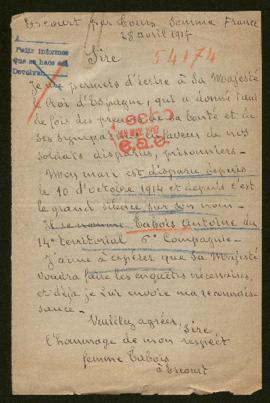 Ercourt par Tours Somme France
28 avril 1917
Sire
54174
Pedir informes
que se hace así
Je me permets d'écrire à Sa Majesté
Roi d'Espagne, qui a donné tant
de fois des preuves de sa bonté et de
ses sympathies en faveur de nos
soldats disparus, prisonniers.
Mon mari est disparu depuis
le 10 d'octobre 1914 et depuis c'est
le grand silence sur son nom.
Il se nomme Tabois Antoine du
14e territorial 6e Compagnie.
J'aime à espérer que Sa Majesté
voudra faire les enquêtes nécessaires,
et déjà je lui envoie ma reconnais-
sance.
Veuillez agréer, Sire
l'hommage de mon respect
femme Tabois
à Ercourt